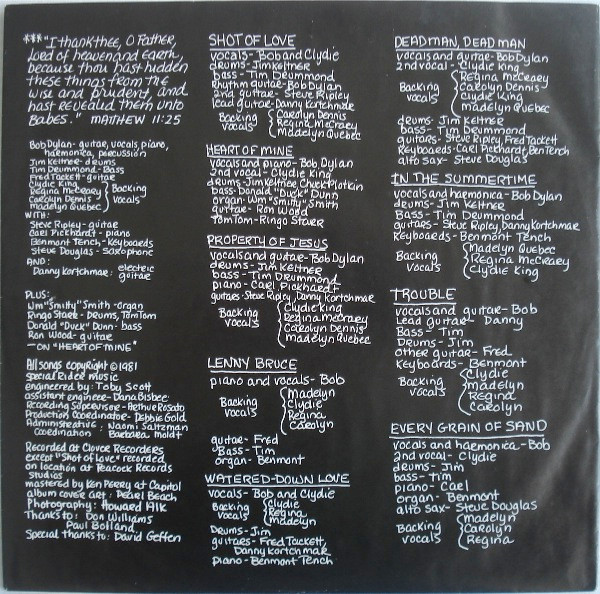 ***"I thank thee, O Father,
Lord of heaven and Earth,
because thou hast hidden
these things from the
wise and prudent, and
hast revealed them unto
Babes." MATTHEW 11:25
Bob Dylan - guitar, vocals, piano,
harmonica, percussion
Jim Keltner - drums
Tim Drummond - Bass
Fred Tackett - guitar
Clydie King
Regina McCreary
Carolyn Dennis
Madelyn Quebec
Backing
vocals
WITH:
Steve Ripley - guitar
Carl Pickhardt - piano
Benmont Tench - Keyboards
Steve Douglas - Saxophone
AND:
Danny Kortchmar: electric
guitar
PLUS:
Wm "Smitty" Smith - organ
Ringo Starr - Drums, TomTom
Donald "Duck" Dunn - bass
Ron Wood - guitar
— ON "HEART OF MINE"
All songs copyright © 1981
Special Rider Music
engineered by: Toby Scott
assistant engineer - Dana Bisbee
Recording Supervisor - Arthur Rosato
Production Coordinator - Debbie Gold
Administrative: Naomi Saltzman
Coordination Barbara Moldt
Recorded at Clover Recorders
except "Shot of Love" recorded
on location at Peacock Records
Studios
mastered by Ken Perry at Capitol
album cover art: Pearl Beach
Photography: Howard Alk
Thanks to: Don Williams
Paul Bolland,
Special thanks to: David Geffen
SHOT OF LOVE
vocals - Bob and Clydie
drums - Jim Keltner
bass - Tim Drummond
Rhythm guitar - Bob Dylan
2nd guitar - Steve Ripley
lead guitar - Danny Kortchmar
Backing
vocals
Carolyn Dennis
Regina McCreary
Madelyn Quebec
HEART OF MINE
vocals and piano - Bob Dylan
2nd vocal - Clydie King
drums - Jim Keltner, Chuck Plotkin
bass - Donald "Duck" Dunn
organ - Wm "Smitty" Smith
guitar - Ron Wood
TomTom - Ringo Starr
PROPERTY OF JESUS
vocals and guitar - Bob Dylan
drums - Jim Keltner
bass - Tim Drummond
piano - Carl Pickhardt
guitars - Steve Ripley, Danny Kortchmar
Backing
vocals
Clydie King
Regina McCreary
Carolyn Dennis
Madelyn Quebec
LENNY BRUCE
piano and vocals - Bob
Backing
vocals
Madelyn
Clydie
Regina
Carolyn
guitar - Fred
Bass - Tim
organ - Benmont
WATERED-DOWN LOVE
vocals - Bob and Clydie
Backing
vocals
Clydie
Regina
Madelyn
Drums - Jim
guitars - Fred Tackett,
Danny Kortchmar
piano - Benmont Tench
DEAD MAN, DEAD MAN
vocals and guitar - Bob Dylan
2nd vocal - Clydie King
Backing
vocals
Regina McCreary
Carolyn Dennis
Clydie King
Madelyn Quebec
drums - Jim Keltner
bass - Tim Drummond
guitars - Steve Ripley, Fred Tackett
Keyboards - Carl Pickhardt, Ben Tench
alto sax - Steve Douglas
IN THE SUMMERTIME
vocals and harmonica - Bob Dylan
drums - Jim Keltner
Bass - Tim Drummond
guitars - Steve Ripley, Danny Kortchmar
Keyboards - Benmont Tench
Backing
vocals
Madelyn Quebec
Regina McCreary
Clydie King
TROUBLE
vocals and guitar - Bob
Lead guitar - Danny
Bass - Tim
Drums - Jim
other guitar - Fred
Keyboards - Benmont
Backing
vocals
Clydie
Madelyn
Regina
Carolyn
EVERY GRAIN OF SAND
vocals and harmonica - Bob
2nd vocal - Clydie
drums - Jim
bass - Tim
piano - Carl
organ - Benmont
alto sax - Steve Douglas
Backing
vocals
Madelyn
Carolyn
Regina